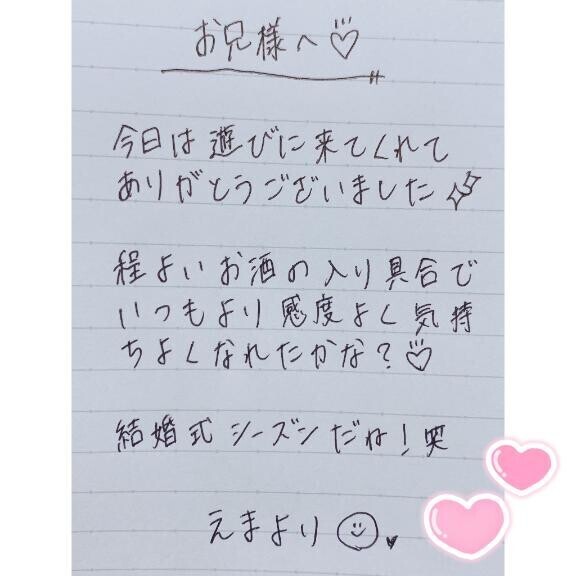 お兄様へ♡
今日は遊びに来てくれて
ありがとうございました
程よいお酒の入り具合で
いつもより感度よく気持
ちよくなれたかな？♡
結婚式シーズンだね！笑
えまより